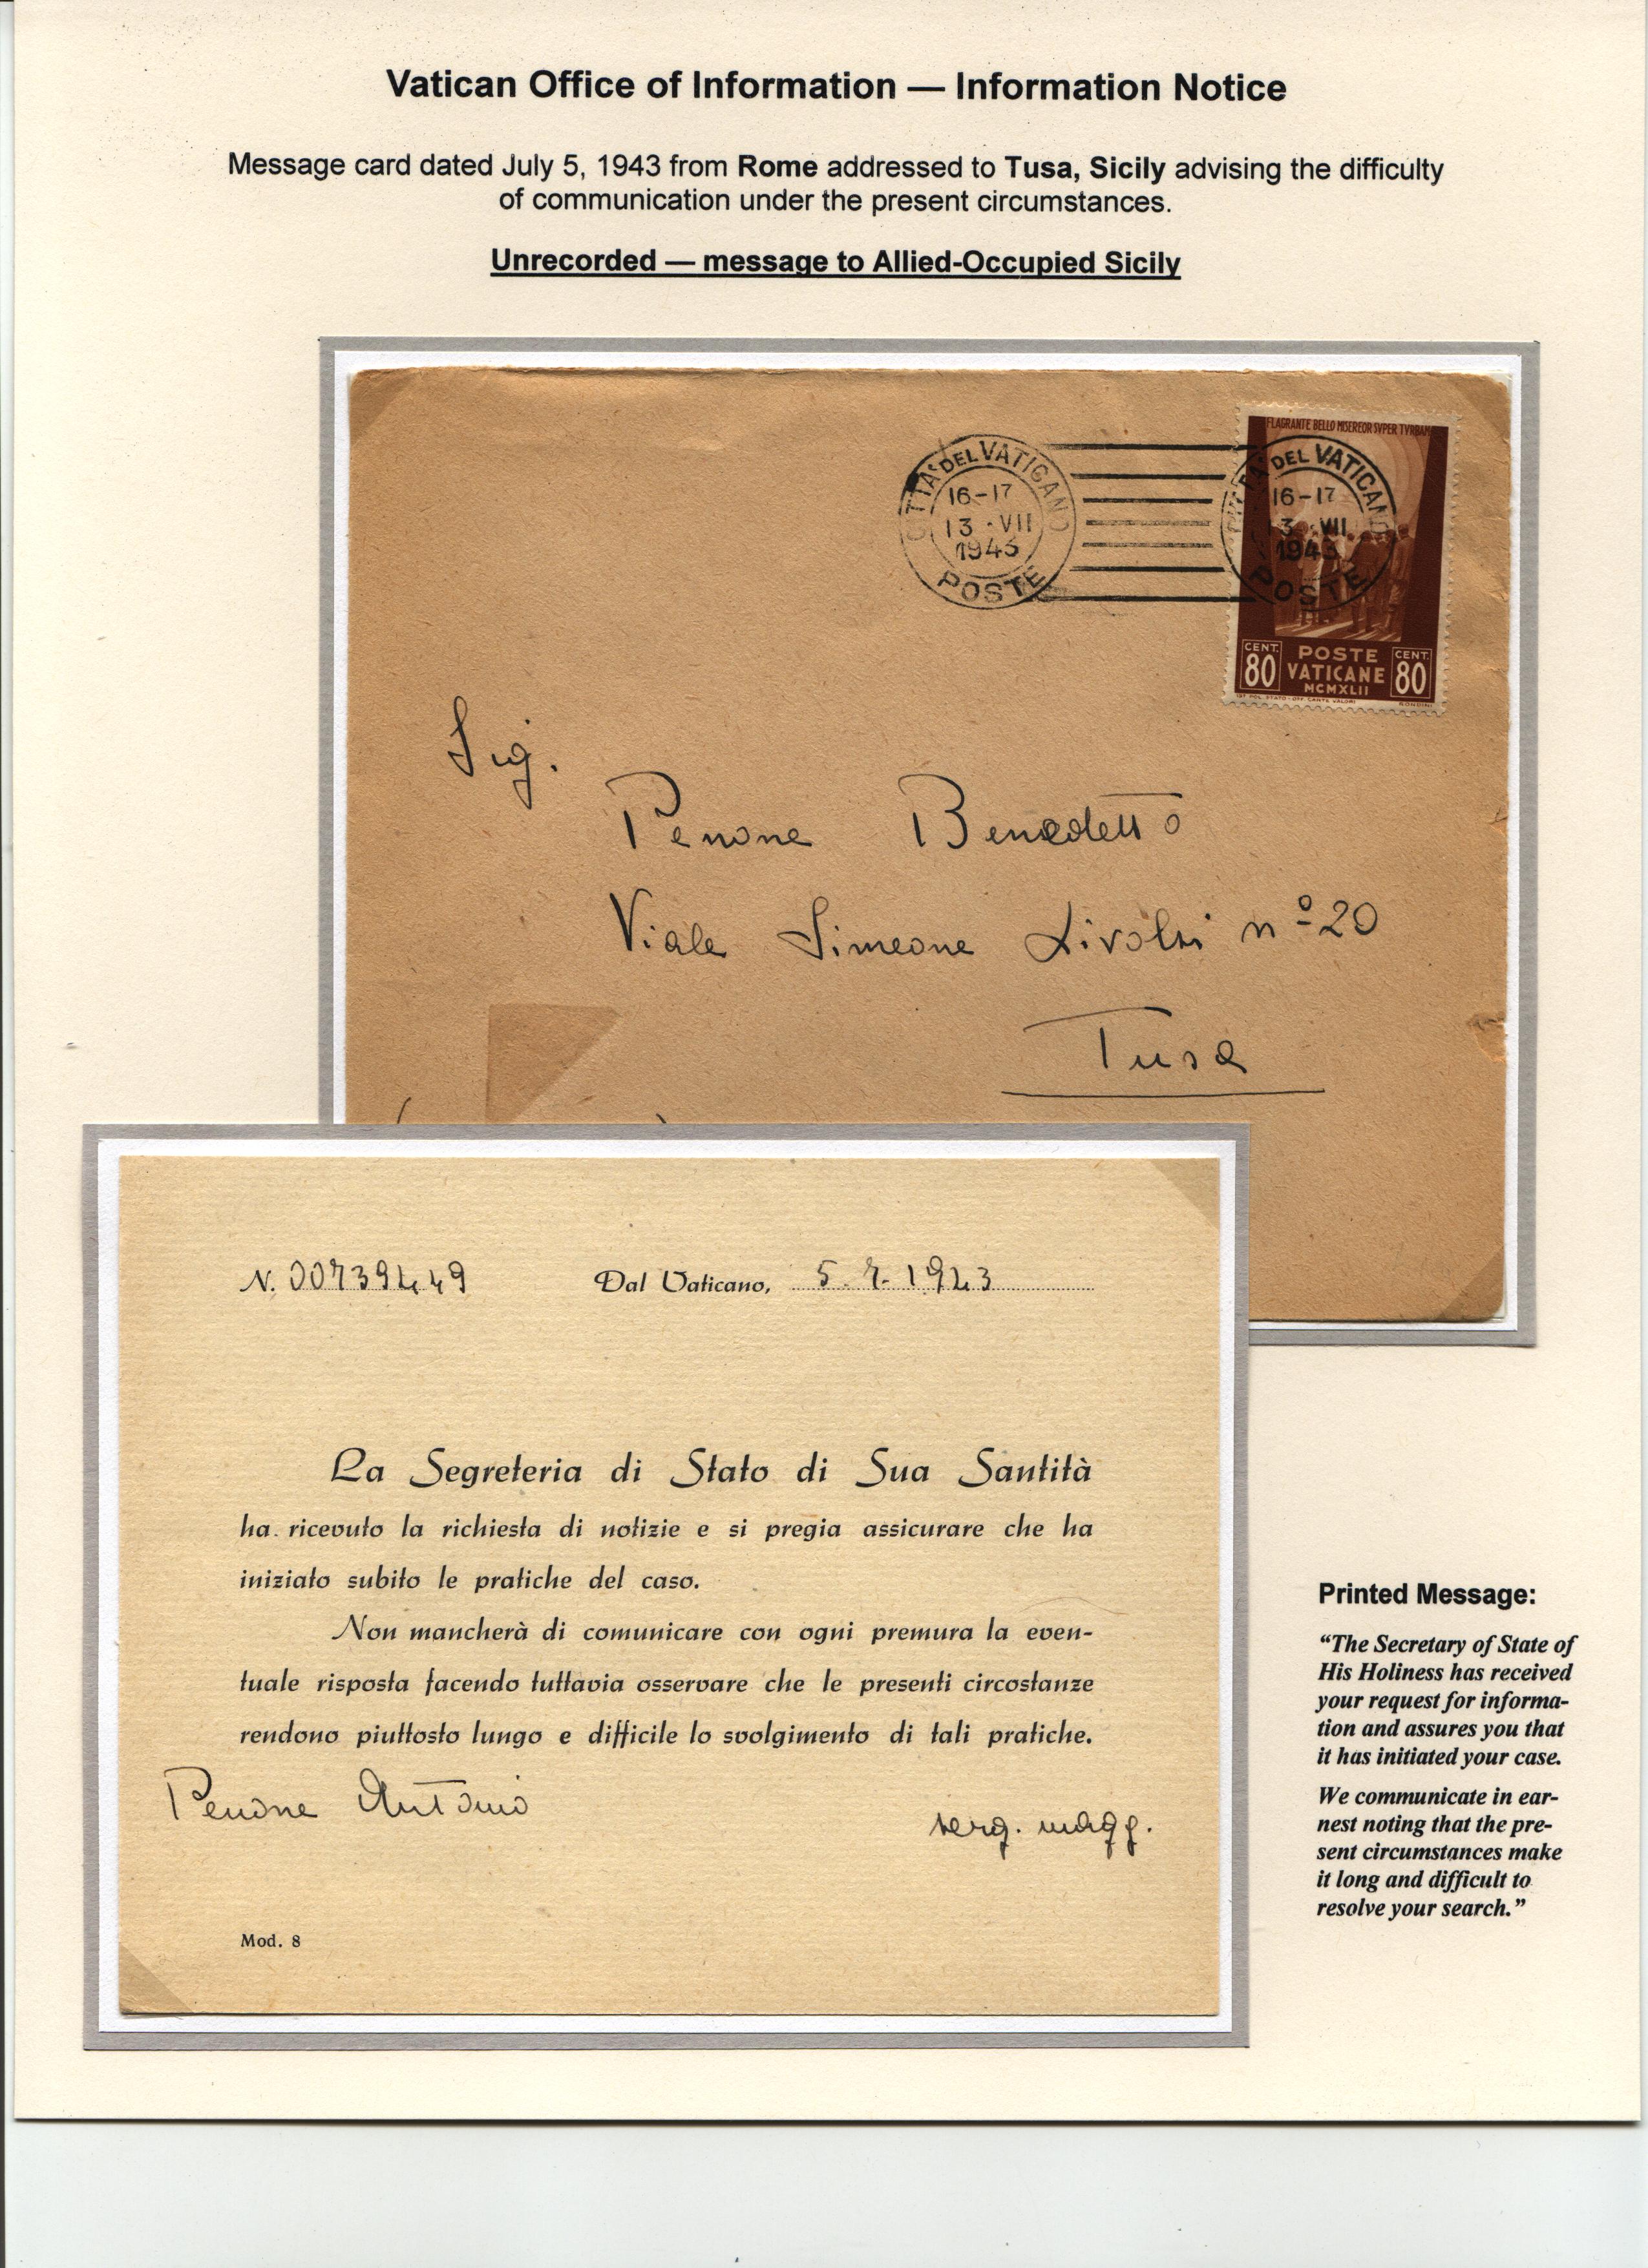 Vatican Office of Information — Information Notice
Message card dated July 5, 1943 from Rome addressed to Tusa, Sicily advising the difficulty
of communication under the present circumstances.
Unrecorded — message to Allied-Occupied Sicily
FLAGRANTE BELLO MISEREOR SVPER TVRBAM
CITTA' DEL VATICANO
16-17
13 · VII
1943
POSTE
CITTA' DEL VATICANO
16-17
13 · VII
1943
POSTE
CENT. 80
POSTE VATICANE
MCMXLII
CENT. 80
IST. POL. STATO - OFF. CARTE VALORI
RONDINI
Sig.
Penone Benedetto
Viale Simeone Livolsi nº 20
Tusa
N. 00739449 Dal Vaticano, 5-7-1943
La Segreteria di Stato di Sua Santità
ha ricevuto la richiesta di notizie e si pregia assicurare che ha
iniziato subito le pratiche del caso.
Non mancherà di comunicare con ogni premura la even-
tuale risposta facendo tuttavia osservare che le presenti circostanze
rendono piuttosto lungo e difficile lo svolgimento di tali pratiche.
Penone Antonio
serg. magg.
Mod. 8
Printed Message:
“The Secretary of State of
His Holiness has received
your request for informa-
tion and assures you that
it has initiated your case.
We communicate in ear-
nest noting that the pre-
sent circumstances make
it long and difficult to
resolve your search.”